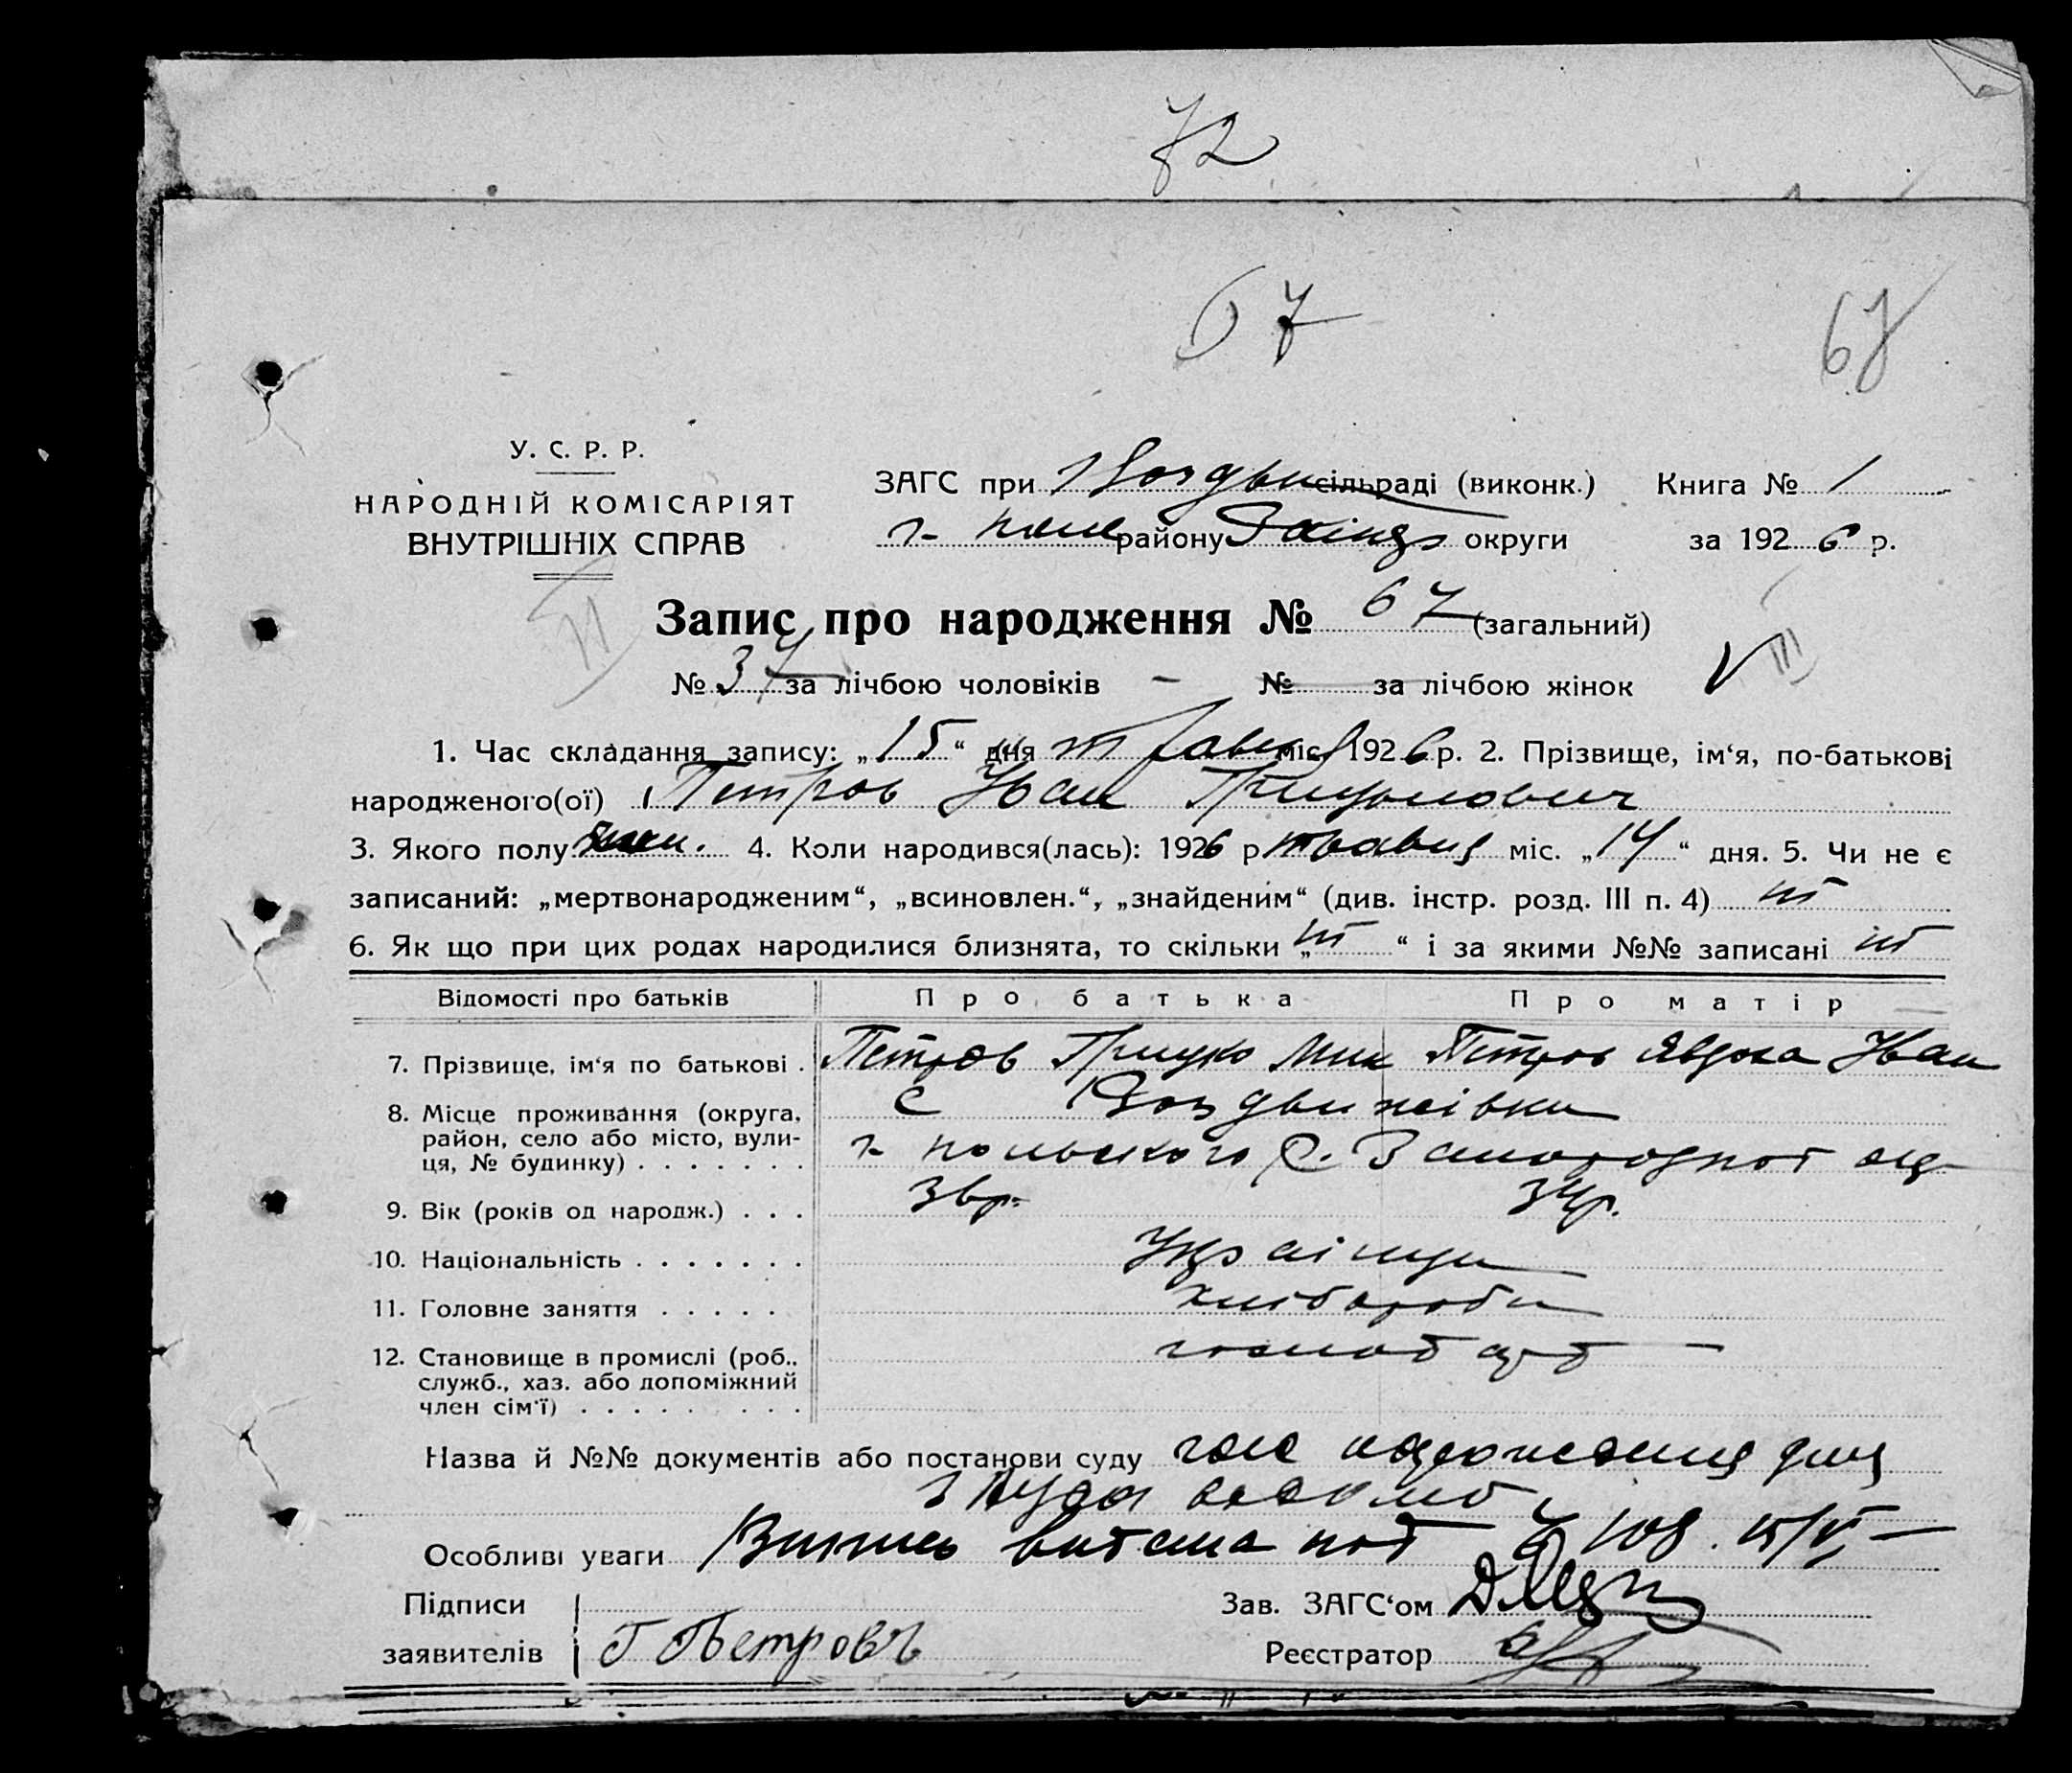 72
67
67
У. С. Р. Р.
НАРОДНІЙ КОМІСАРІЯТ
ВНУТРІШНІХ СПРАВ
ЗАГС при Воздви сільраді (виконк.) Книга № 1
г- поле району округи за 1926 р.
Запис про народження № 67 (загальний)
№ 37 за лічбою чоловіків - № за лічбою жінок
1. Час складання запису: „15“ дня травня міс. 1926 р. 2. Прізвище, ім‘я, по-батькові
народженого(ої) Петров Іван Грицькович
3. Якого полу 4. Коли народився(лась): 1926 р травня міс. „14“ дня. 5. Чи не є
записаний: „мертвонародженим“, „всиновлен.“, „знайденим“ (див. інстр. розд. III п. 4) ні
6. Як що при цих родах народилися близнята, то скільки „ні“ і за якими №№ записані ні
Відомості про батьків Про батька Про матір
7. Прізвище, ім‘я по батькові . Петров Грицько Мик Петров Явдоха Іван
8. Місце проживання (округа, с Воздвижівки
район, село або місто, вули- г- польского р. Запорожкої окр
ця, № будинку) . . . . . . .
9. Вік (років од народж.) . . . 36р. 34р.
10. Національність . . . . . . . Українци
11. Головне заняття . . . . . хлібороби
12. Становище в промислі (роб.,
служб., хаз. або допоміжний
член сім‘ї) . . . . . . . . .
Назва й №№ документів або постанови суду
Особливі уваги Випись видана под № 108. 15/V
Підписи Зав. ЗАГС‘ом
заявителів Г Петровъ Реєстратор